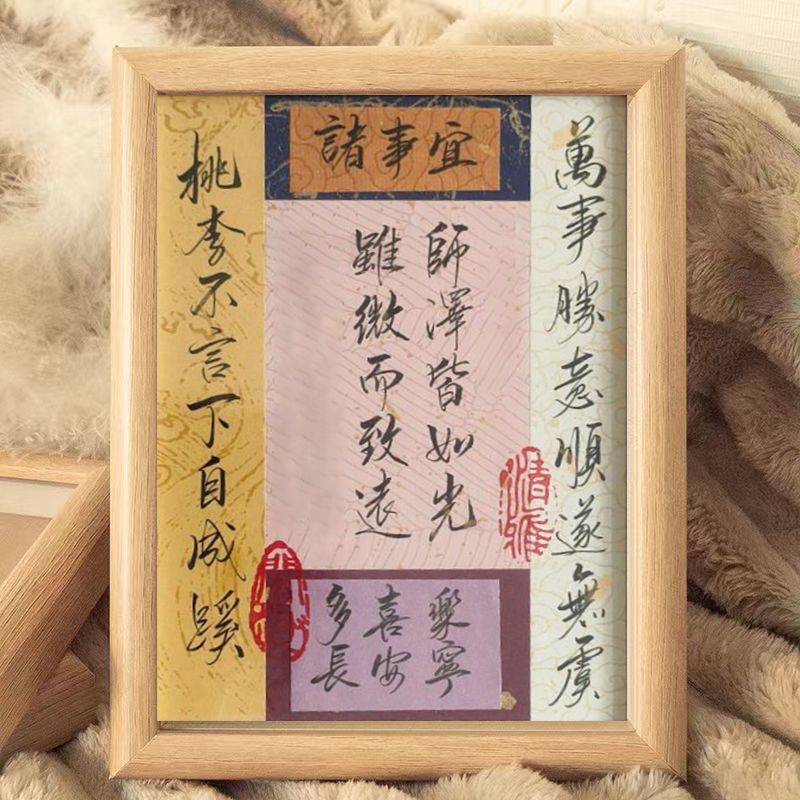 萬事勝意順遂無虞
諸事宜
師澤皆如光
雖微而致遠
多喜樂
長安寧
桃李不言下自成蹊